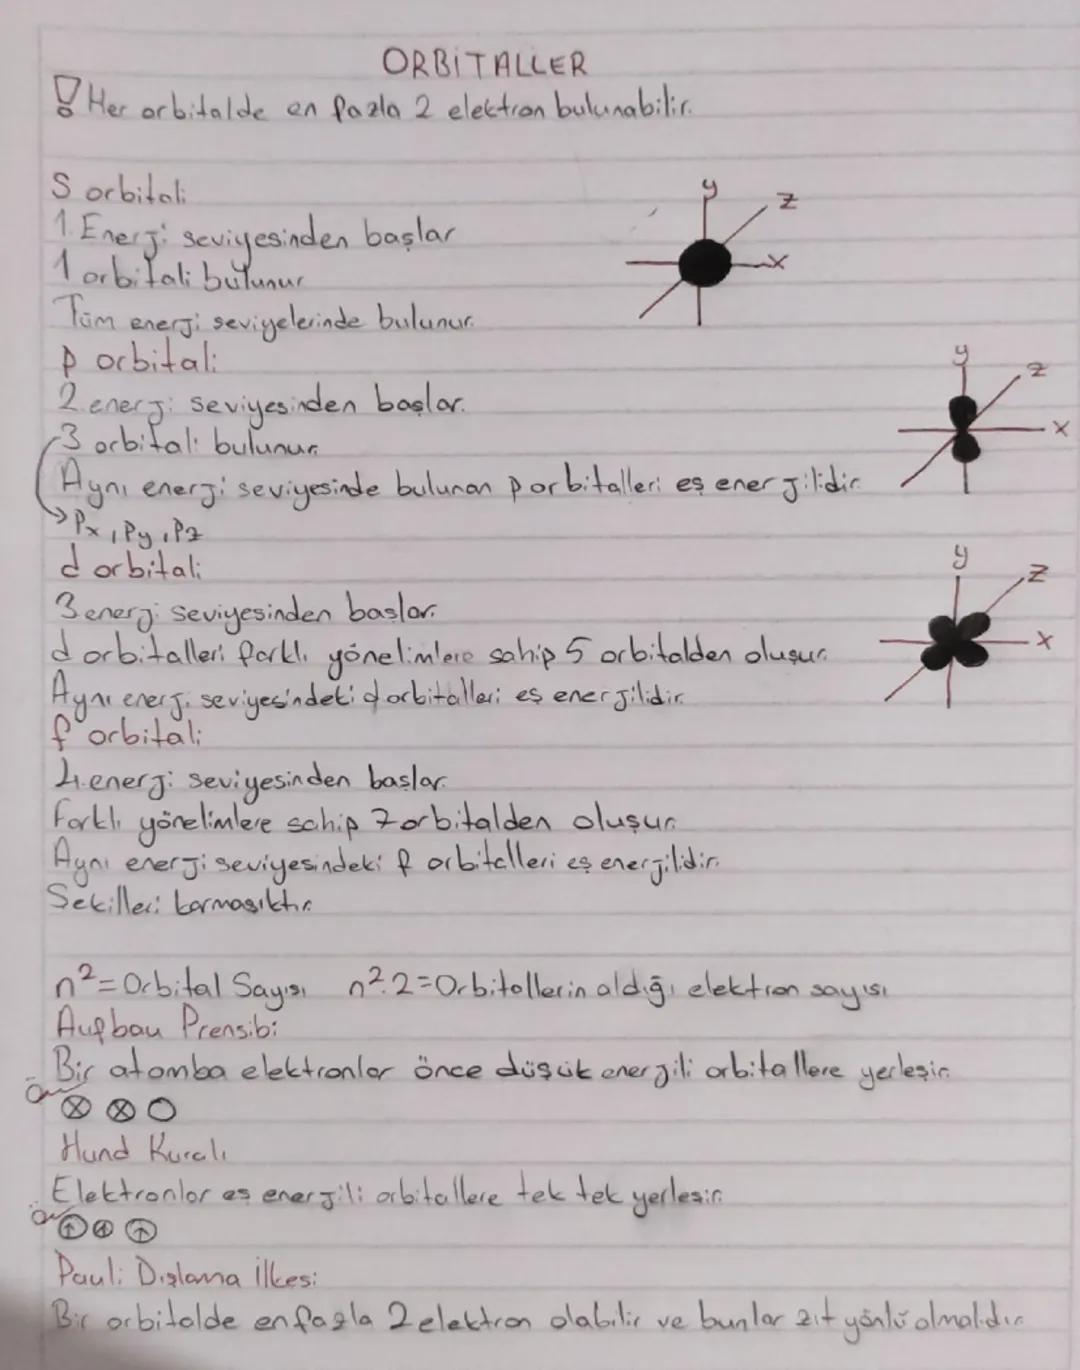 ORBİTALLER
! Her orbitalde en fazla 2 elektron bulunabilir.
S orbitali
1. Enerji seviyesinden başlar
1 orbitali bulunur
Tüm enerji seviyelerinde bulunur.
y
z
x
p orbitali
2.enerji seviyesinden başlar.
3 orbitali bulunur.
Aynı enerji seviyesinde bulunan p orbitalleri eş enerjilidir.
→Px, Py, Pz
y
z
x
d orbitali
3 enerji seviyesinden başlar.
d orbitalleri farklı yönelimlere sahip 5 orbitalden oluşur.
Aynı enerji seviyesindeki d orbitalleri eş enerjilidir.
y
z
x
f orbitali
4.enerji seviyesinden başlar.
Farklı yönelimlere sahip 7 orbitalden oluşur.
Aynı enerji seviyesindeki f orbitalleri eş enerjilidir.
Şekilleri karmaşıktır.
n²=Orbital Sayısı n².2=Orbitallerin aldığı elektron sayısı
Aufbau Prensibi
Bir atomba elektronlar önce düşük enerjili orbitallere yerleşir.
Ör
Hund Kuralı
Elektronlar eş enerjili orbitallere tek tek yerleşir.
Ör
Pauli Dışlama İlkesi
Bir orbitalde en fazla 2 elektron olabilir ve bunlar zıt yönlü olmalıdır.